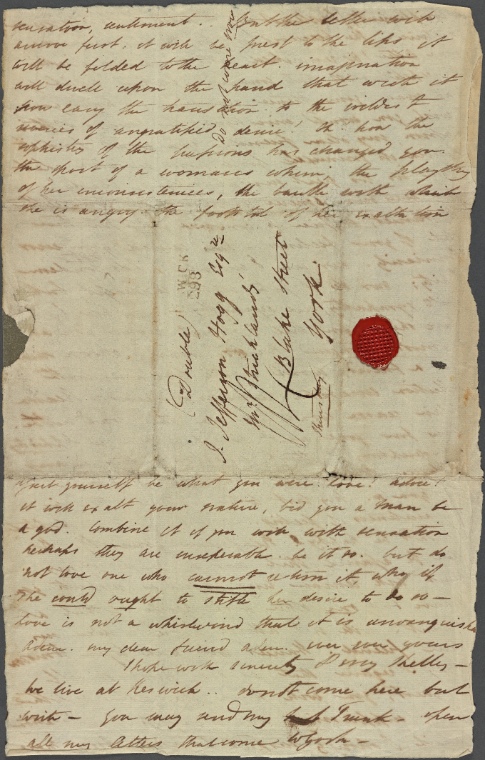 sensation, sentiment. But the letter with
arrive first, it will be prest to the lips it
will be folded to the heart. imagination
will dwell upon the hand that wrote it
how easy the transition to the wildest
of ungratified desire! Oh how the
sophistry of the passions has changed you.
the sport of a womans whim, the plaything
of her inconsistencies, the bauble with which
she is angry the footstool of her exaltation
Do not
WICK
293
(Double)
J. Jefferson Hogg Esqre
Mr. Stricklands
Blake Street
York
Thursday
yourself be what you were love! adore!
it will exalt your nature, bid you a man be
a god. Combine it if you will with sensation
perhaps they are inseparable be it so. but do
not love one who cannot return it, who if
she could ought to stifle her desire to do so—
love is not a whirlwind that it is unvanquishable
Adieu. my dear friend adieu. ever ever yours
I hope with sincerity Percy Shelley—
We live at Keswick.. do not come here but
write— you may send my Trunk— open
all my letters that come to York—